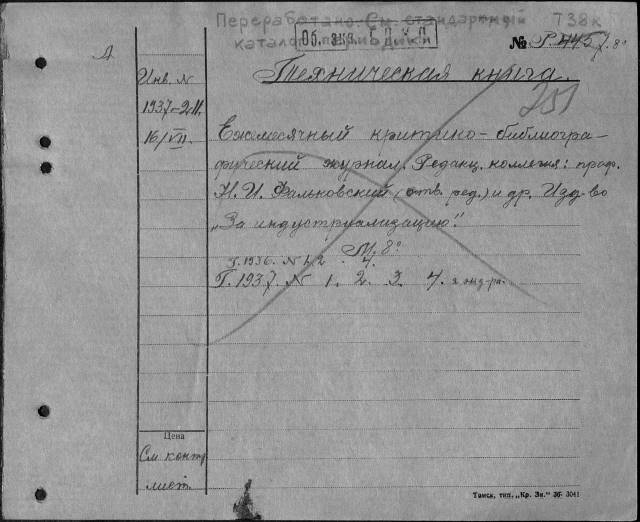 Переработано См. стандартный Т38к
каталог периодики
Об. экз.
№ Р. 4457. 8°
Техническая книга.
251
Инв. №
1937-211.
16/VII.
Ежемесячный критико-библиогра-
фический журнал. Редакц. коллегия: проф.
Н. И. Фальковский (отв. ред.) и др. Изд-во
„За индустриализацию".
М. 8°
Г. 1936. N 1. 2 . 4.
Г. 1937. N 1. 2. 3. 4.
Цена
См. контр
лист.
Томск, тип. „Кр. Зн." 36 3041